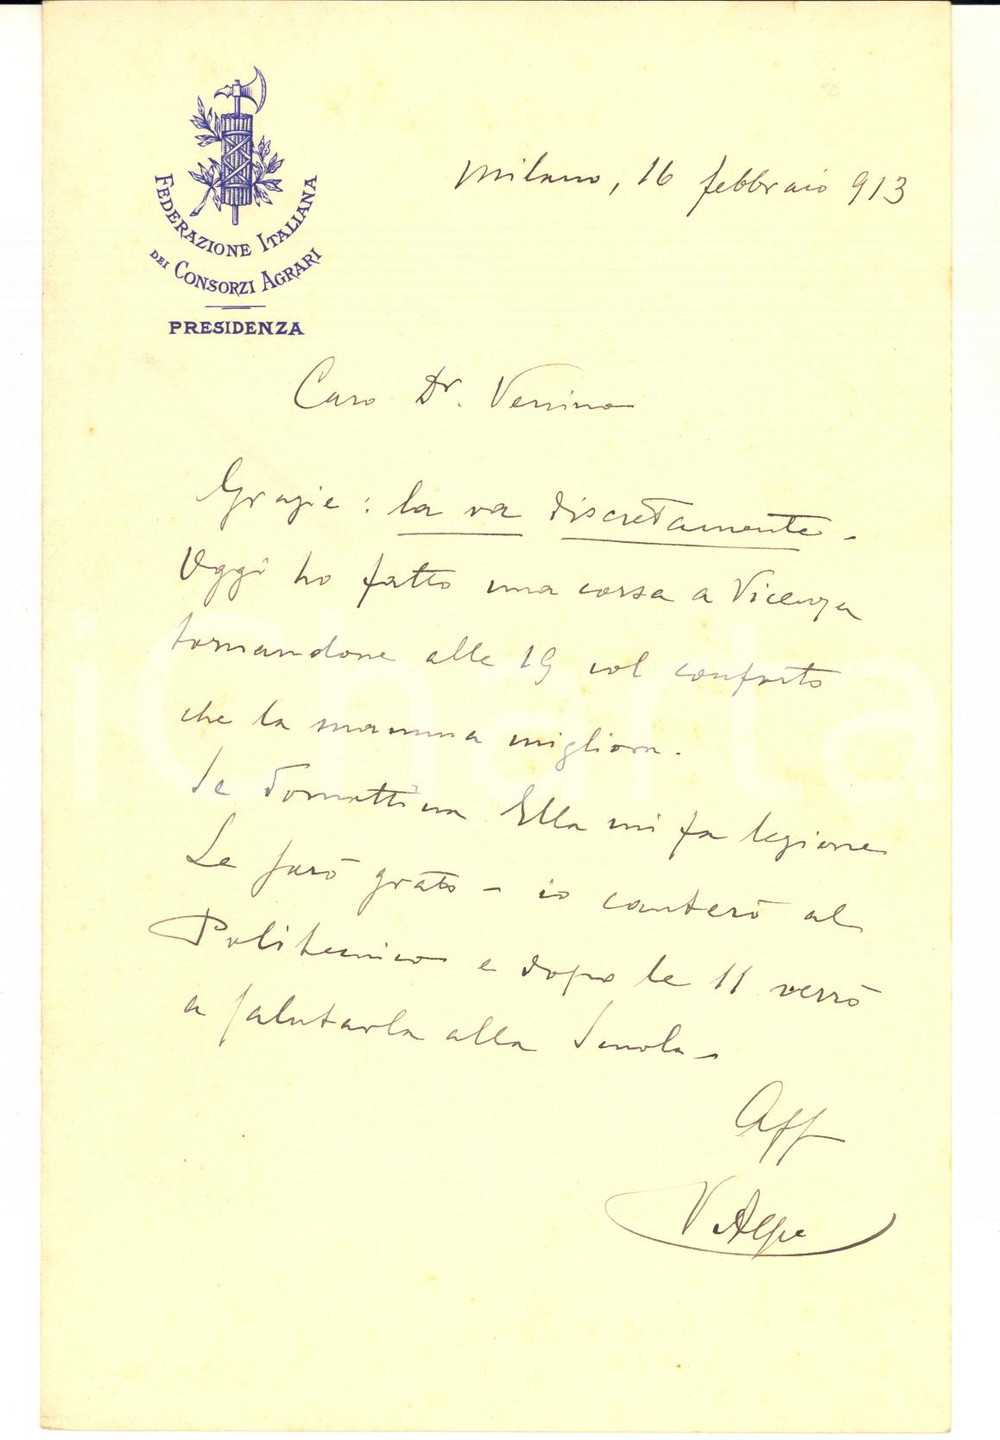 FEDERAZIONE ITALIANA
DEI CONSORZI AGRARI
PRESIDENZA
Milano, 16 febbraio 913
Caro Dr.
Grazie : la va discretamente -
Oggi ho fatto una corsa a Vicenza
tornandone alle 19 col conforto
che la mamma migliora.
Se domattina Ella mi fa lezione
Le sarò grato - io canterò al
Politecnico e dopo le 11 verrò
a salutarla alla Scuola -
Aff
V Alpe
iCharta